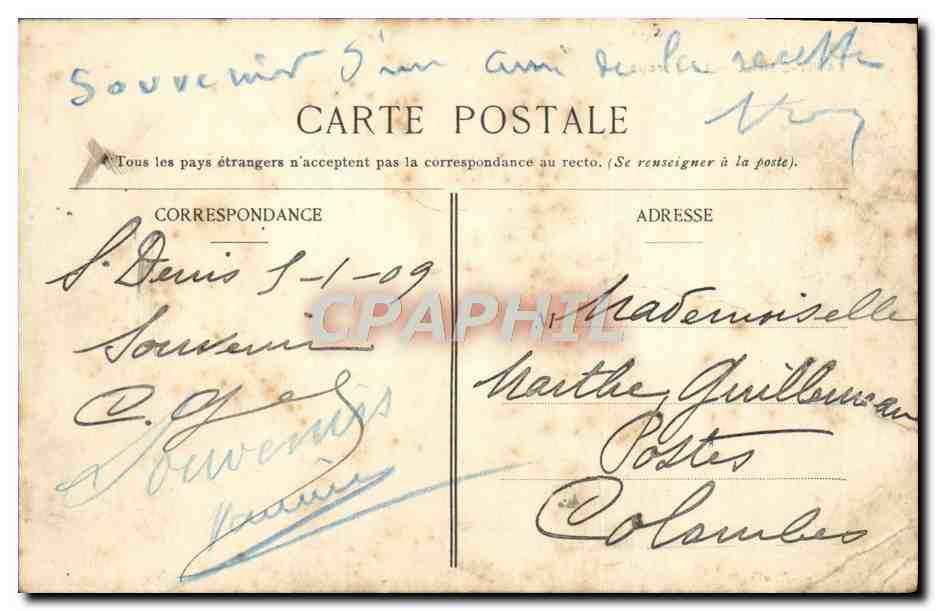 Souvenir d'un ami de la recette
CARTE POSTALE
Tous les pays étrangers n'acceptent pas la correspondance au recto. (Se renseigner à la poste).
CORRESPONDANCE
St Denis 5-1-09
Souvenir
C.
Souvenirs
ADRESSE
Mademoiselle
Marthe Guillemeau
Postes
Colombes
CPAPHIL